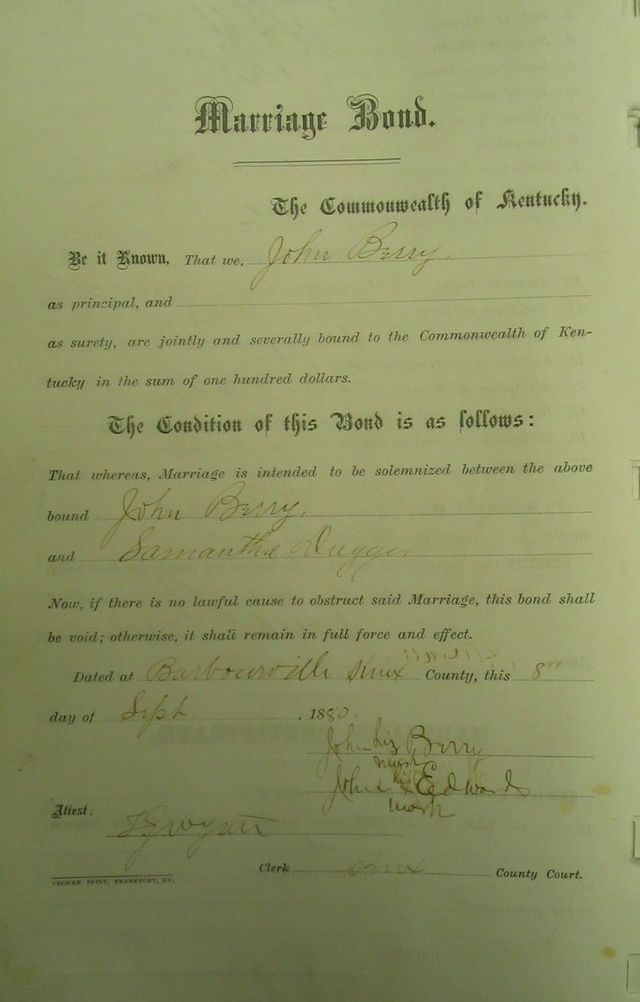 Marriage Bond.
The Commonwealth of Kentucky.
Be it Known, That we, John Berry,
as principal, and
as surety, are jointly and severally bound to the Commonwealth of Ken-
tucky in the sum of one hundred dollars.
The Condition of this Bond is as follows:
That whereas, Marriage is intended to be solemnized between the above
bound John Berry,
and Samantha Dugger
Now, if there is no lawful cause to obstruct said Marriage, this bond shall
be void; otherwise, it shall remain in full force and effect.
Dated at Barbourville Knox County, this 8"
day of Sept, 1880.
John his Berry
mark
John his Edwards
mark
Attest:
Clerk Knox County Court.
YEOMAN PRINT, FRANKFORT, KY.